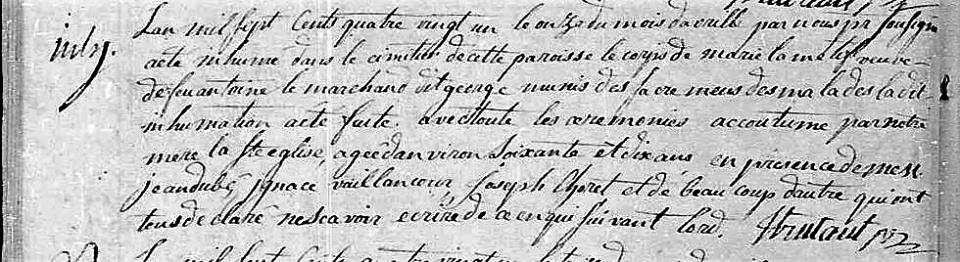 Lan mil sept Cents quatre vingt un le onze du mois davrille par nous ptr Sousigné
inhy.
acté inhumé dans le cimitier de cette paroisse le corps de marie la metif veuve
de feu antoine le marchand dit george munis des sacremens des malades la dit
inhumation acté faite avec toute les ceremonies accoutumé par notre
mere la Ste eglise, agée danviron Soixante et dix ans en presence de mess.
jean dubé ignace vaillancour, Joseph Choret et de beaucoup dautre qui ont
tous declaré ne scavoir ecrire de ce enqui suivant lord.
ptr